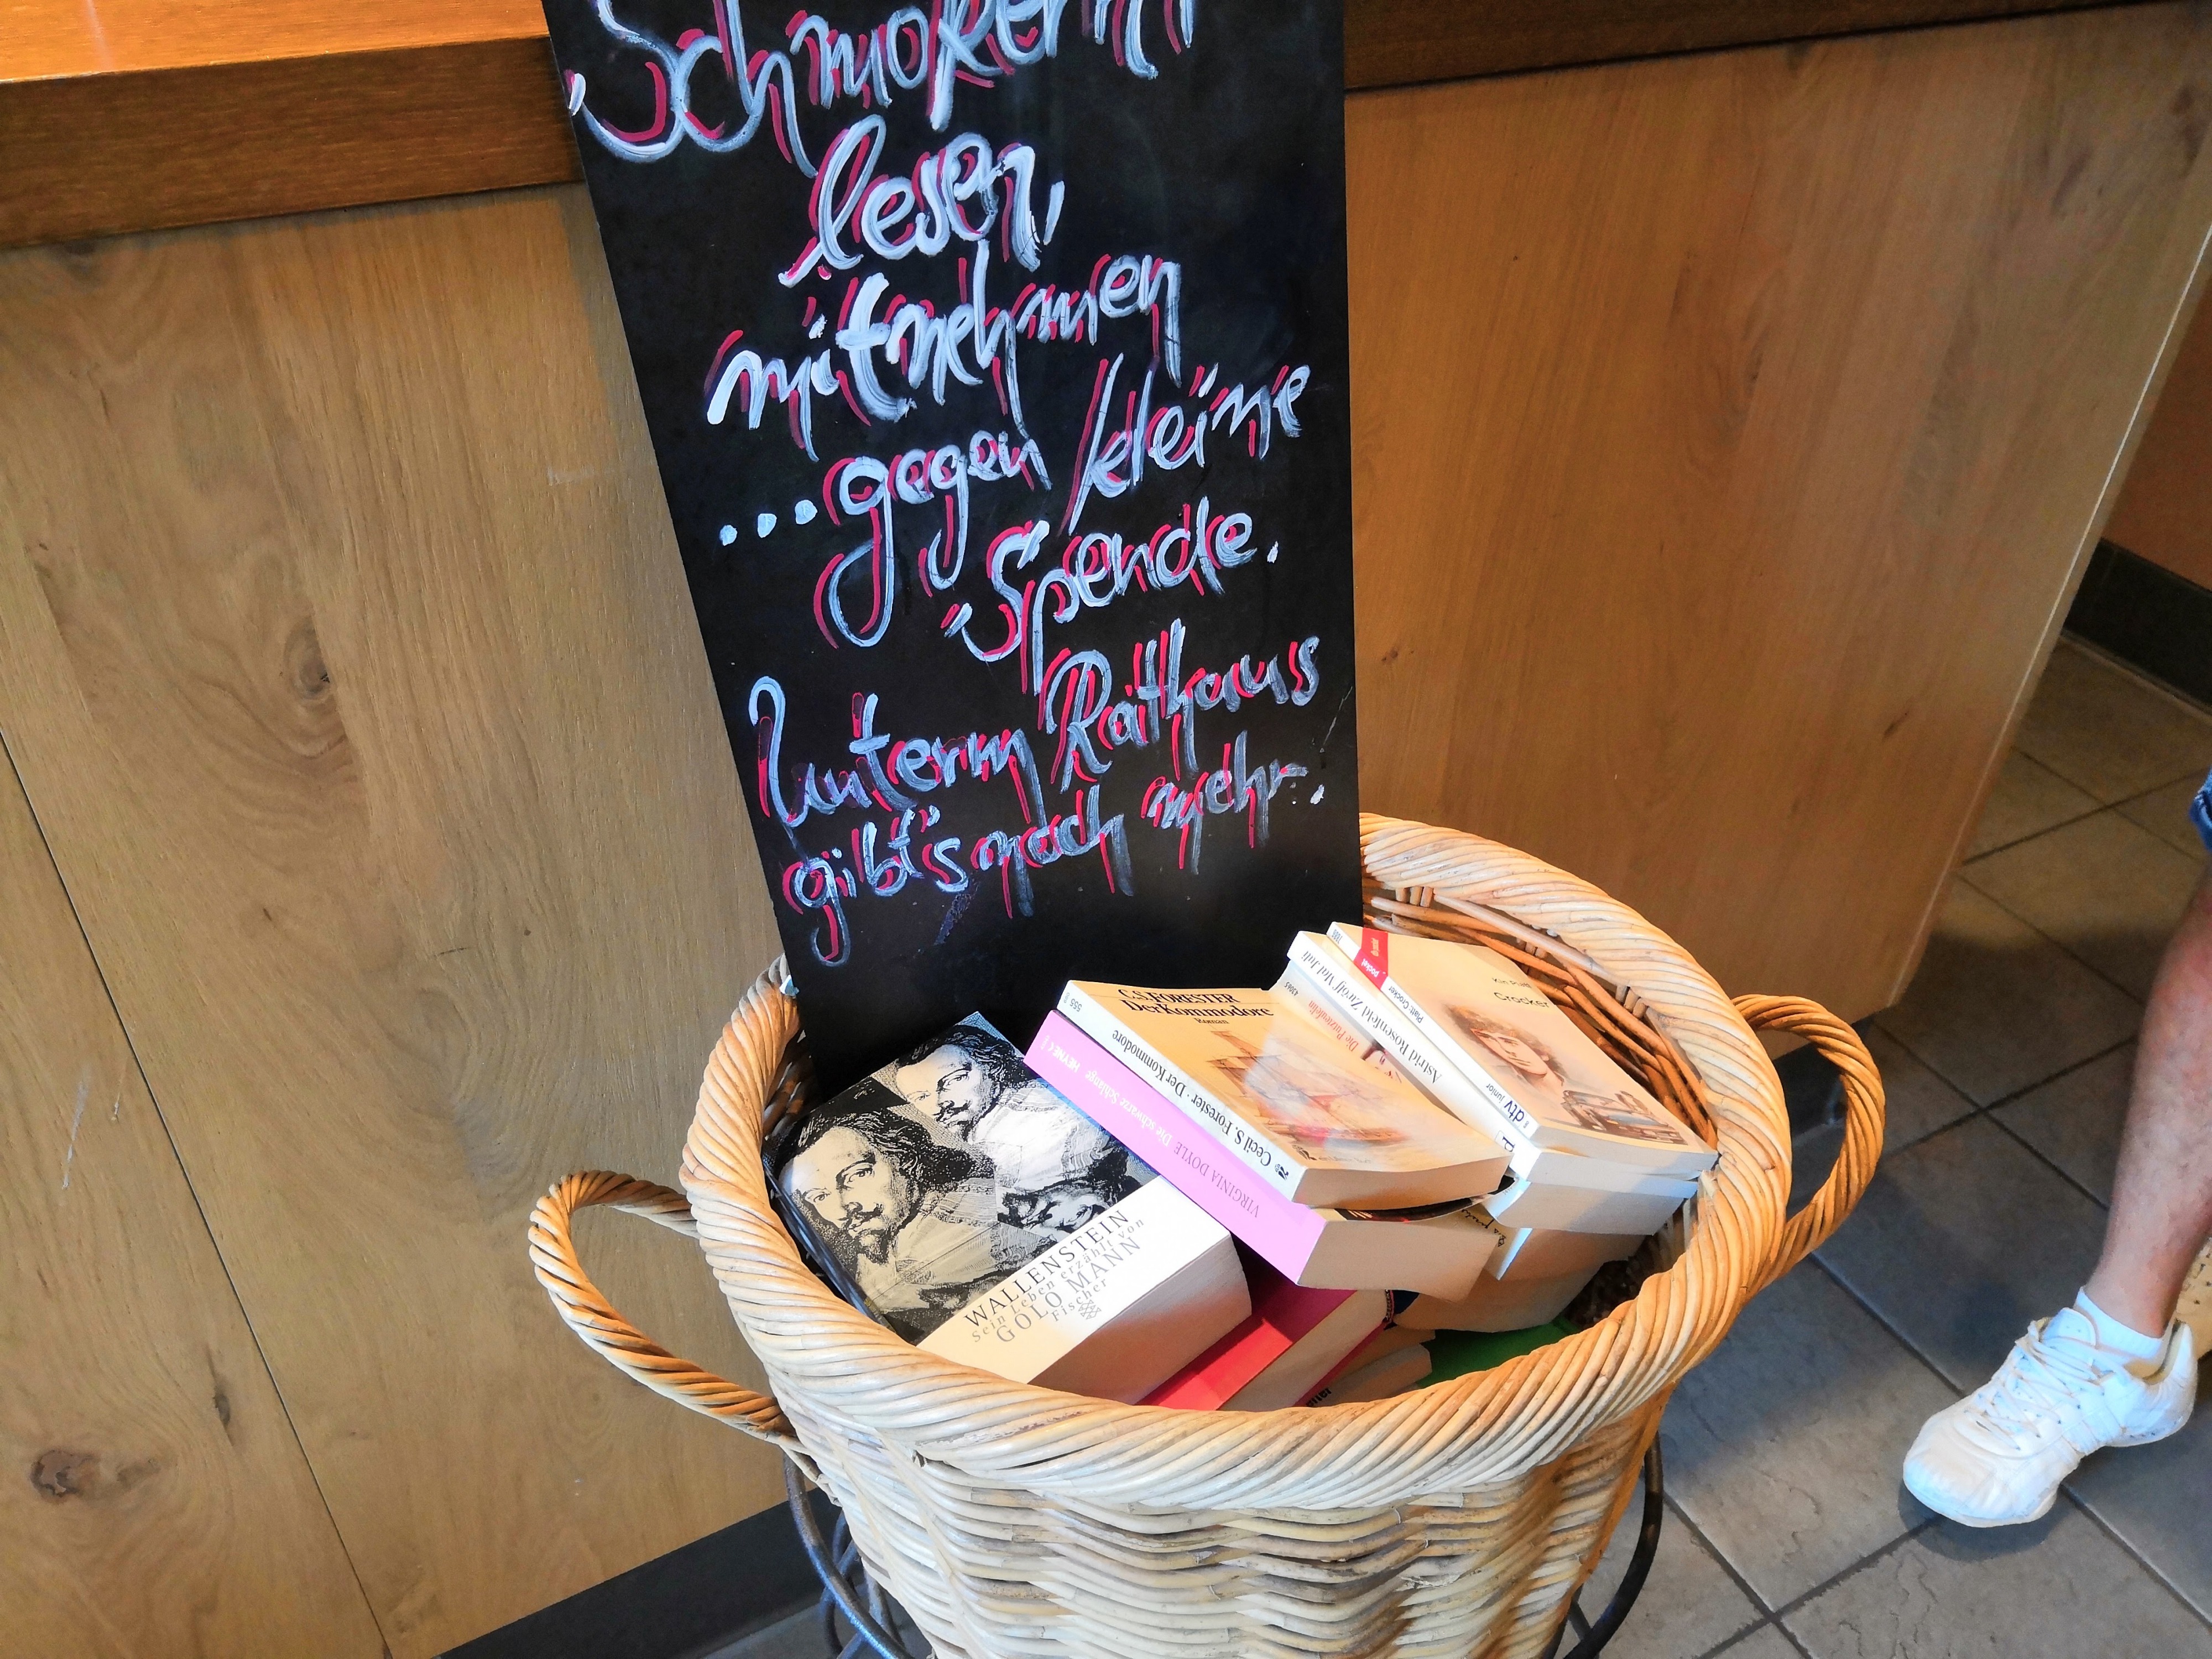 Schmökern
lesen,
mitnehmen
...gegen kleine
Spende.
Unterm Rathaus
gibt's noch mehr.
C.S. FORESTER
Der Kommodore
Roman
555
Cecil S. Forester · Der Kommodore
HEYNE
Die schwarze Schlange
VIRGINIA DOYLE
43065
Die Piratenfalle
Astrid Rosenfeld
dtv junior
pocket
Platt: Crocker
Crocker
WALLENSTEIN
Sein Leben erzählt von
GOLO MANN
Fischer